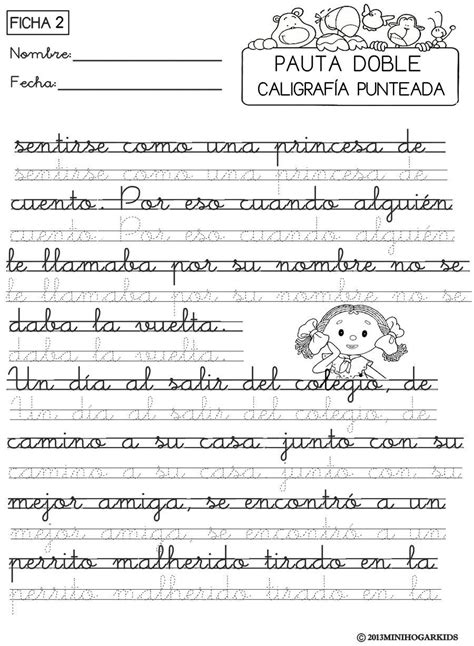 FICHA 2
Nombre:
Fecha:
PAUTA DOBLE
CALIGRAFÍA PUNTEADA
sentirse como una princesa de
sentirse como una princesa de
cuento. Por eso cuando alguién
cuento. Por eso cuando alguién
le llamaba por su nombre no se
le llamaba por su nombre no se
daba la vuelta.
daba la vuelta.
Un día al salir del colegio, de
Un día al salir del colegio, de
camino a su casa junto con su
camino a su casa junto con su
mejor amiga, se encontró a un
mejor amiga, se encontró a un
perrito malherido tirado en la
perrito malherido tirado en la
©2013MINIHOGARKIDS